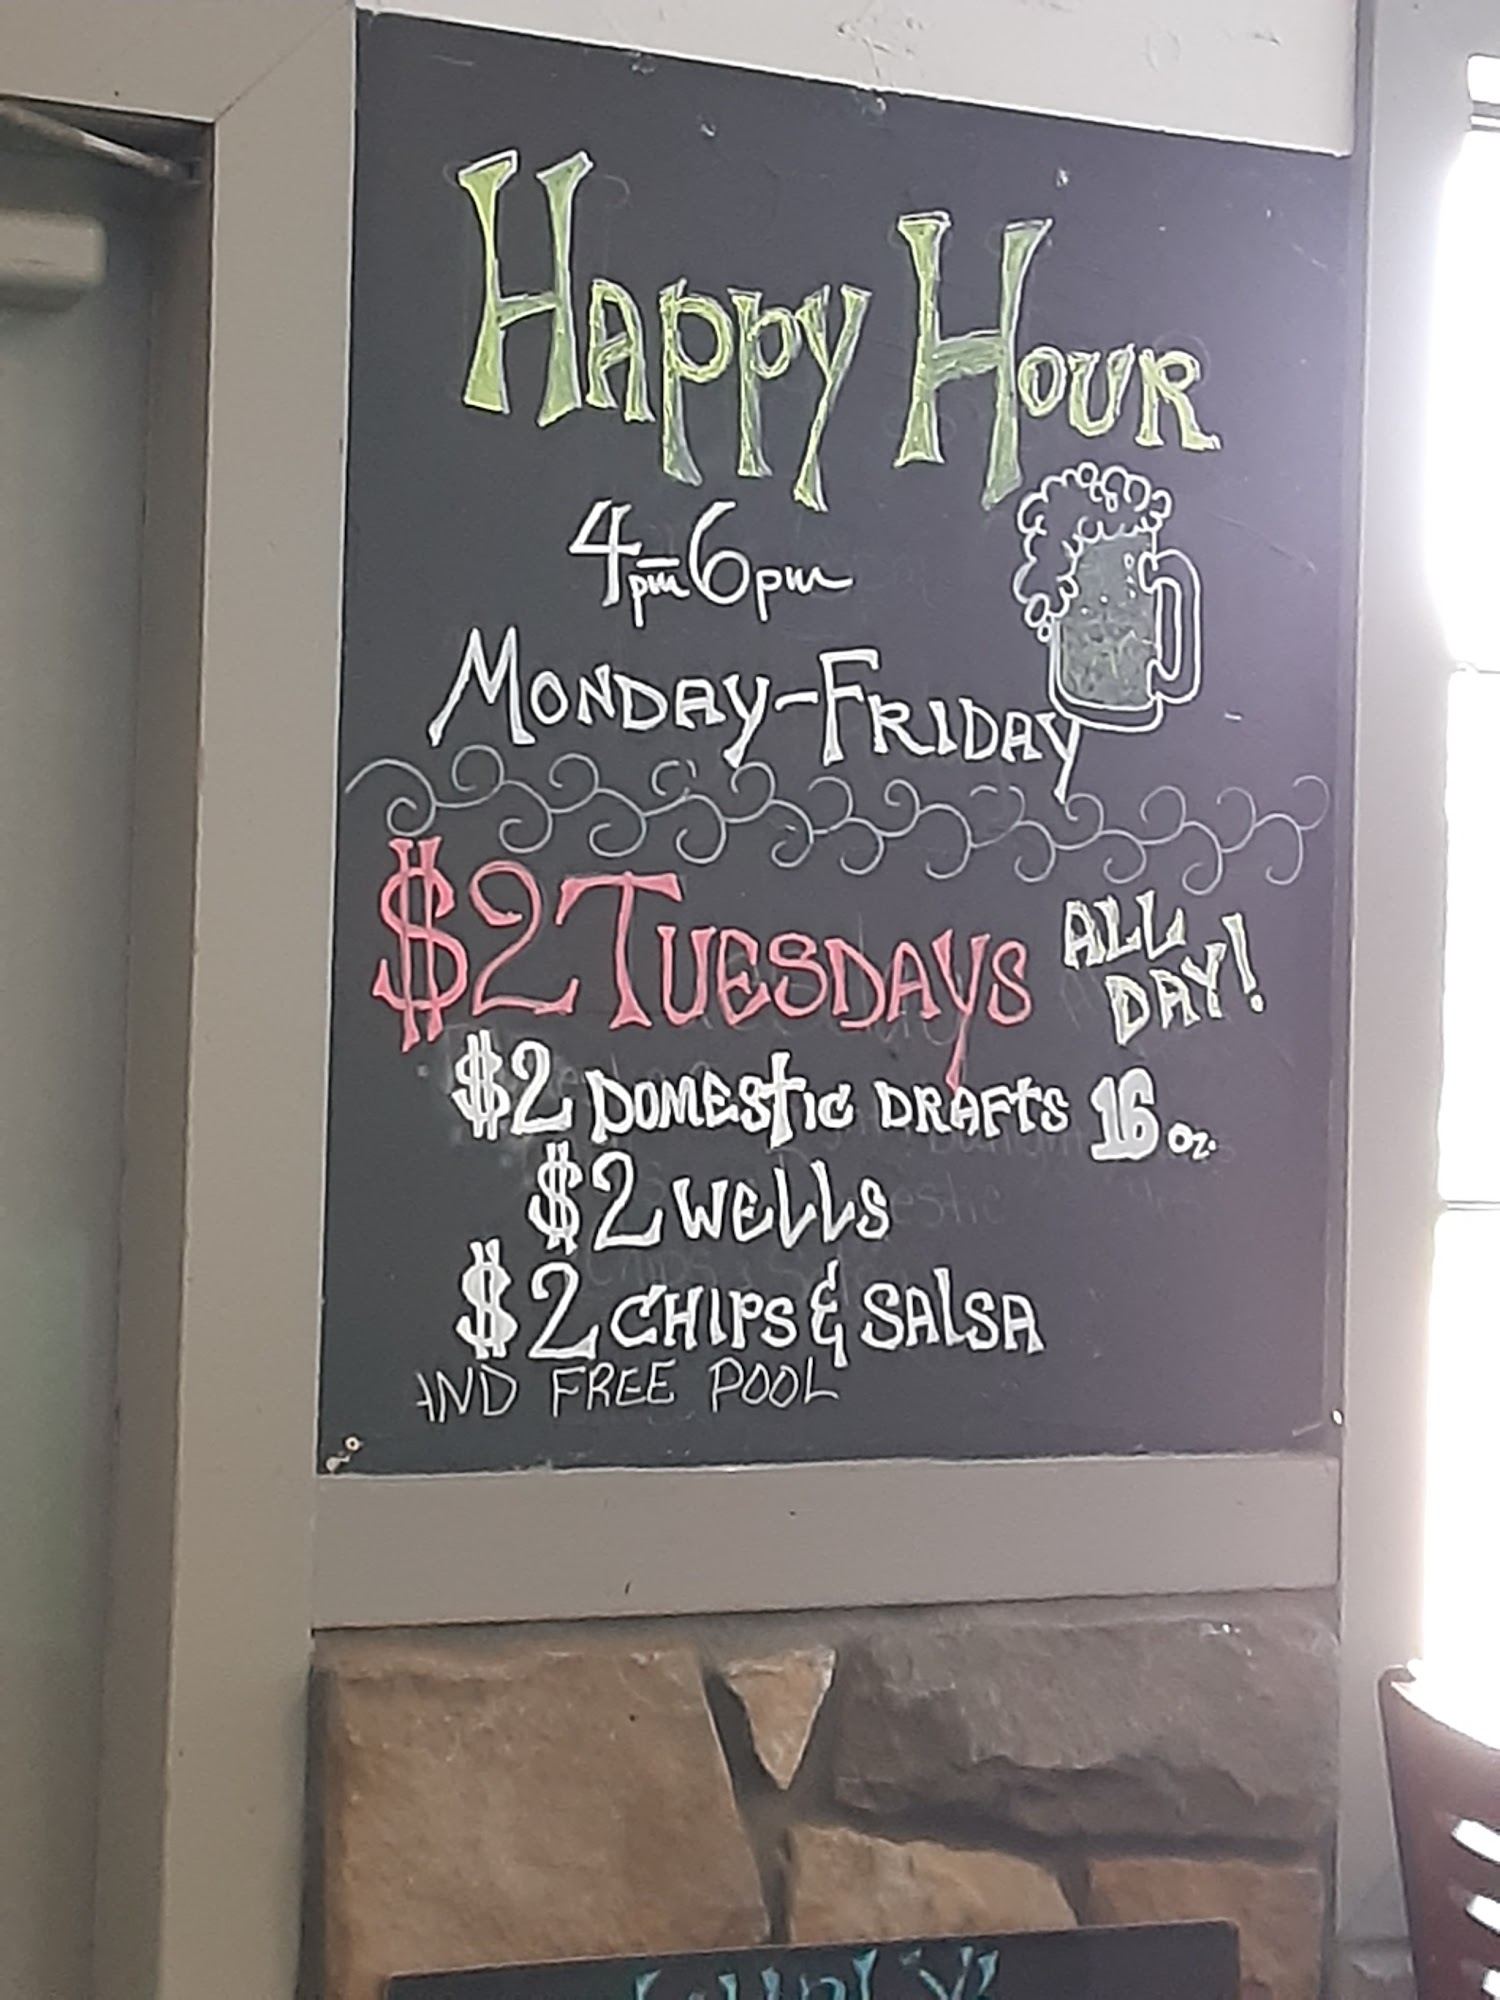 Happy Hour
4pm-6pm
Monday-Friday
$2 Tuesdays ALL DAY!
$2 Domestic Drafts 16 oz.
$2 Wells
$2 Chips & Salsa
AND FREE POOL